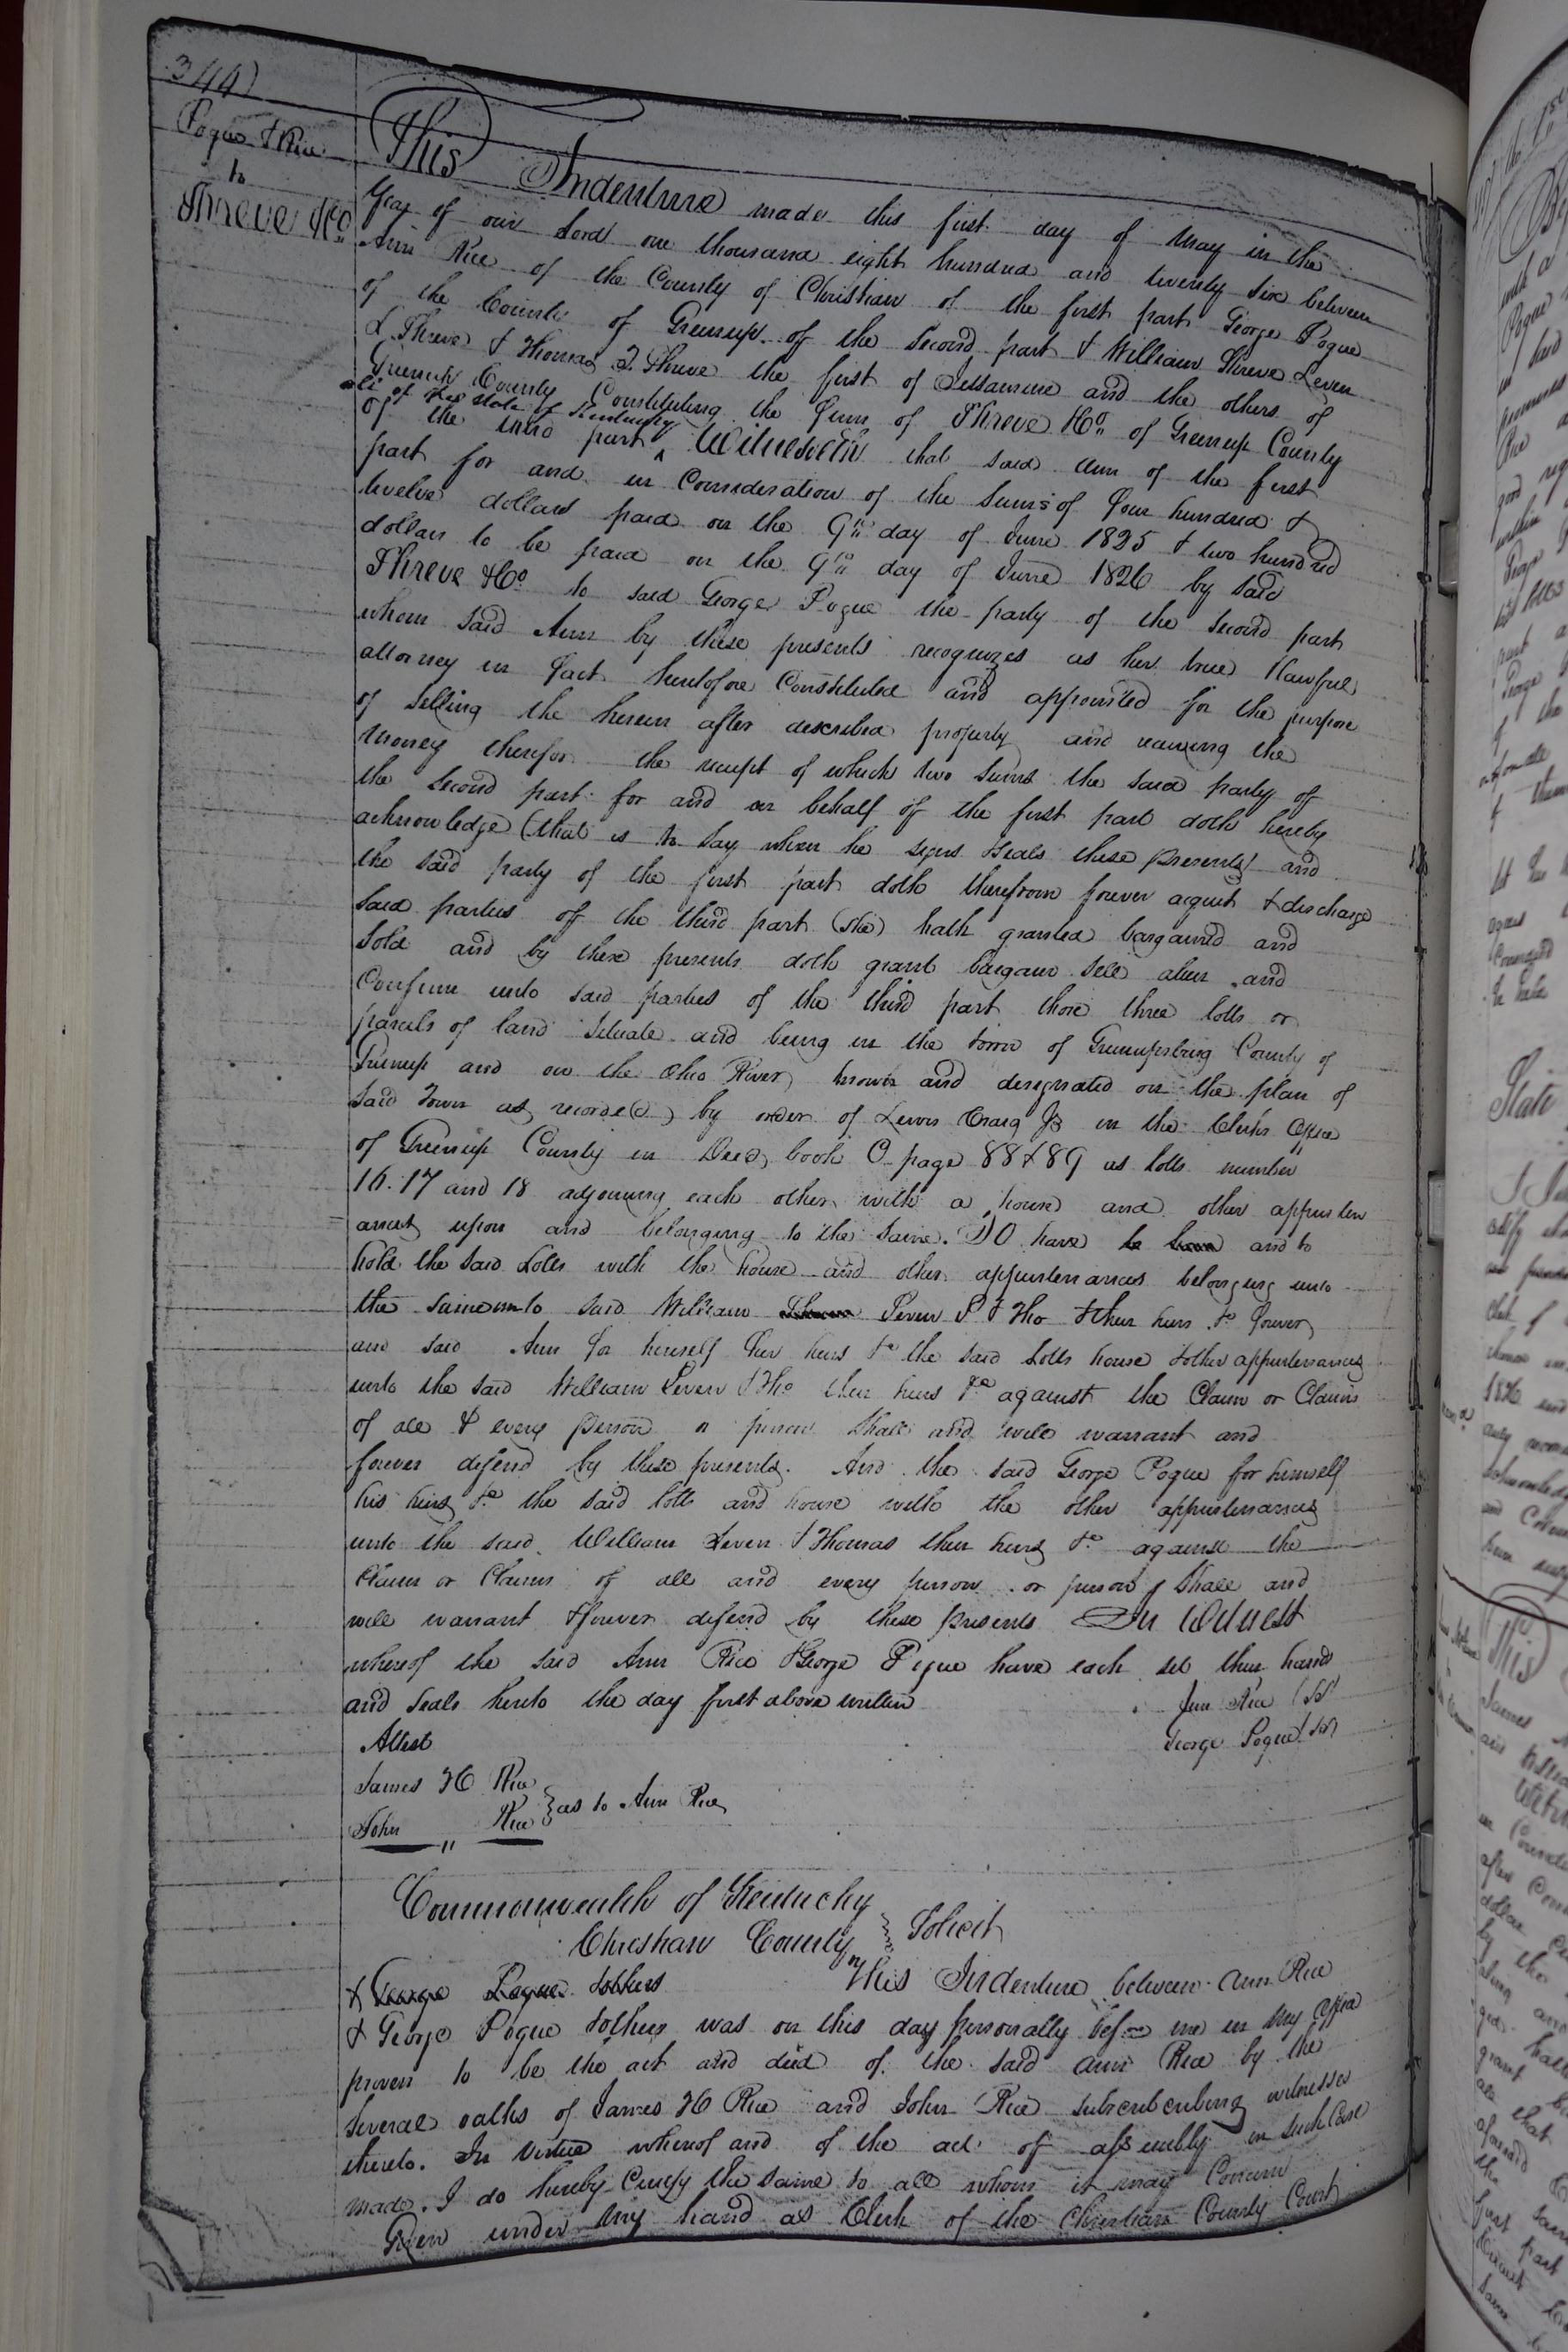 344)
Pogue & Rice
to
Shreve & Co.
This Indenture made this first day of May in the
Year of our Lord one thousand eight hundred and twenty six between
Ann Rice of the County of Christian of the first part George Pogue
of the County of Greenup of the Second part & William Shreve Leven
L. Shreve & Thomas T. Shreve the first of Jessamine and the others of
Greenup County Constituting the firm of Shreve & Co. of Greenup County
all of the State of Kentucky
of the third part ^ Witnesseth that said Ann of the first
part for and in Consideration of the Sums of four hundred &
twelve dollars paid on the 9th day of June 1825 & two hundred
dollars to be paid on the 9th day of June 1826 by said
Shreve & Co. to said George Pogue the party of the Second part
whom said Ann by these presents recognizes as her true & lawful
attorney in fact heretofore Constituted and appointed for the purpose
of selling the herein after described property and receiving the
money therefor the receipt of which two sums the said party of
the Second part for and on behalf of the first part doth hereby
acknowledge (that is to say when he signs & seals these presents) and
the said party of the first part doth therefrom forever acquit & discharge
said parties of the third part (she) hath granted bargained and
Sold and by these presents doth grant bargain sell alien and
Confirm unto said parties of the third part those three lotts or
parcels of land situate and being in the town of Greenupsburg County of
Greenup and on the Ohio River, known and designated on the plan of
said Town as recorde(d) by order of Lewis Craig Jr in the Clerks Office
of Greenup County in Deed book C page 88 & 89 as lotts number
16. 17 and 18 adjoining each other with a house and other appurten
ances upon and belonging to the same. TO have to have and to
hold the said Lotts with the house and other appurtenances belonging unto
the same unto said William Leven & Tho & their heirs &c forever,
and said Ann for herself her heirs &c the said Lotts house & other appurtenances
unto the said William Leven & Tho their heirs &c against the Claim or Claims
of all & every person or person shall and will warrant and
forever defend by these presents. And the said George Pogue for himself
his heirs &c the said lotts and house with the other appurtenances
unto the said William Leven & Thomas their heirs &c against the
Claim or Claims of all and every person or persons shall and
will warrant & forever defend by these presents In Witness
whereof the said Ann Rice & George Pogue have each set their hands
and seals hereto the day first above written
Ann Rice
George Pogue
Attest
James H Rice
John " Rice } as to Ann Rice
Commonwealth of Kentucky
Christian County } Sct
This Indenture between Ann Rice
& George Pogue & others
& George Pogue & others was on this day personally before me in my Office
proven to be the act and deed of the said Ann Rice by the
several oaths of James H Rice and John Rice subscribeing witnesses
thereto. In virtue whereof and of the act of assembly in such Case
made. I do hereby Certify the same to all whom it may Concern
Given under my hand as Clerk of the Christian County Court